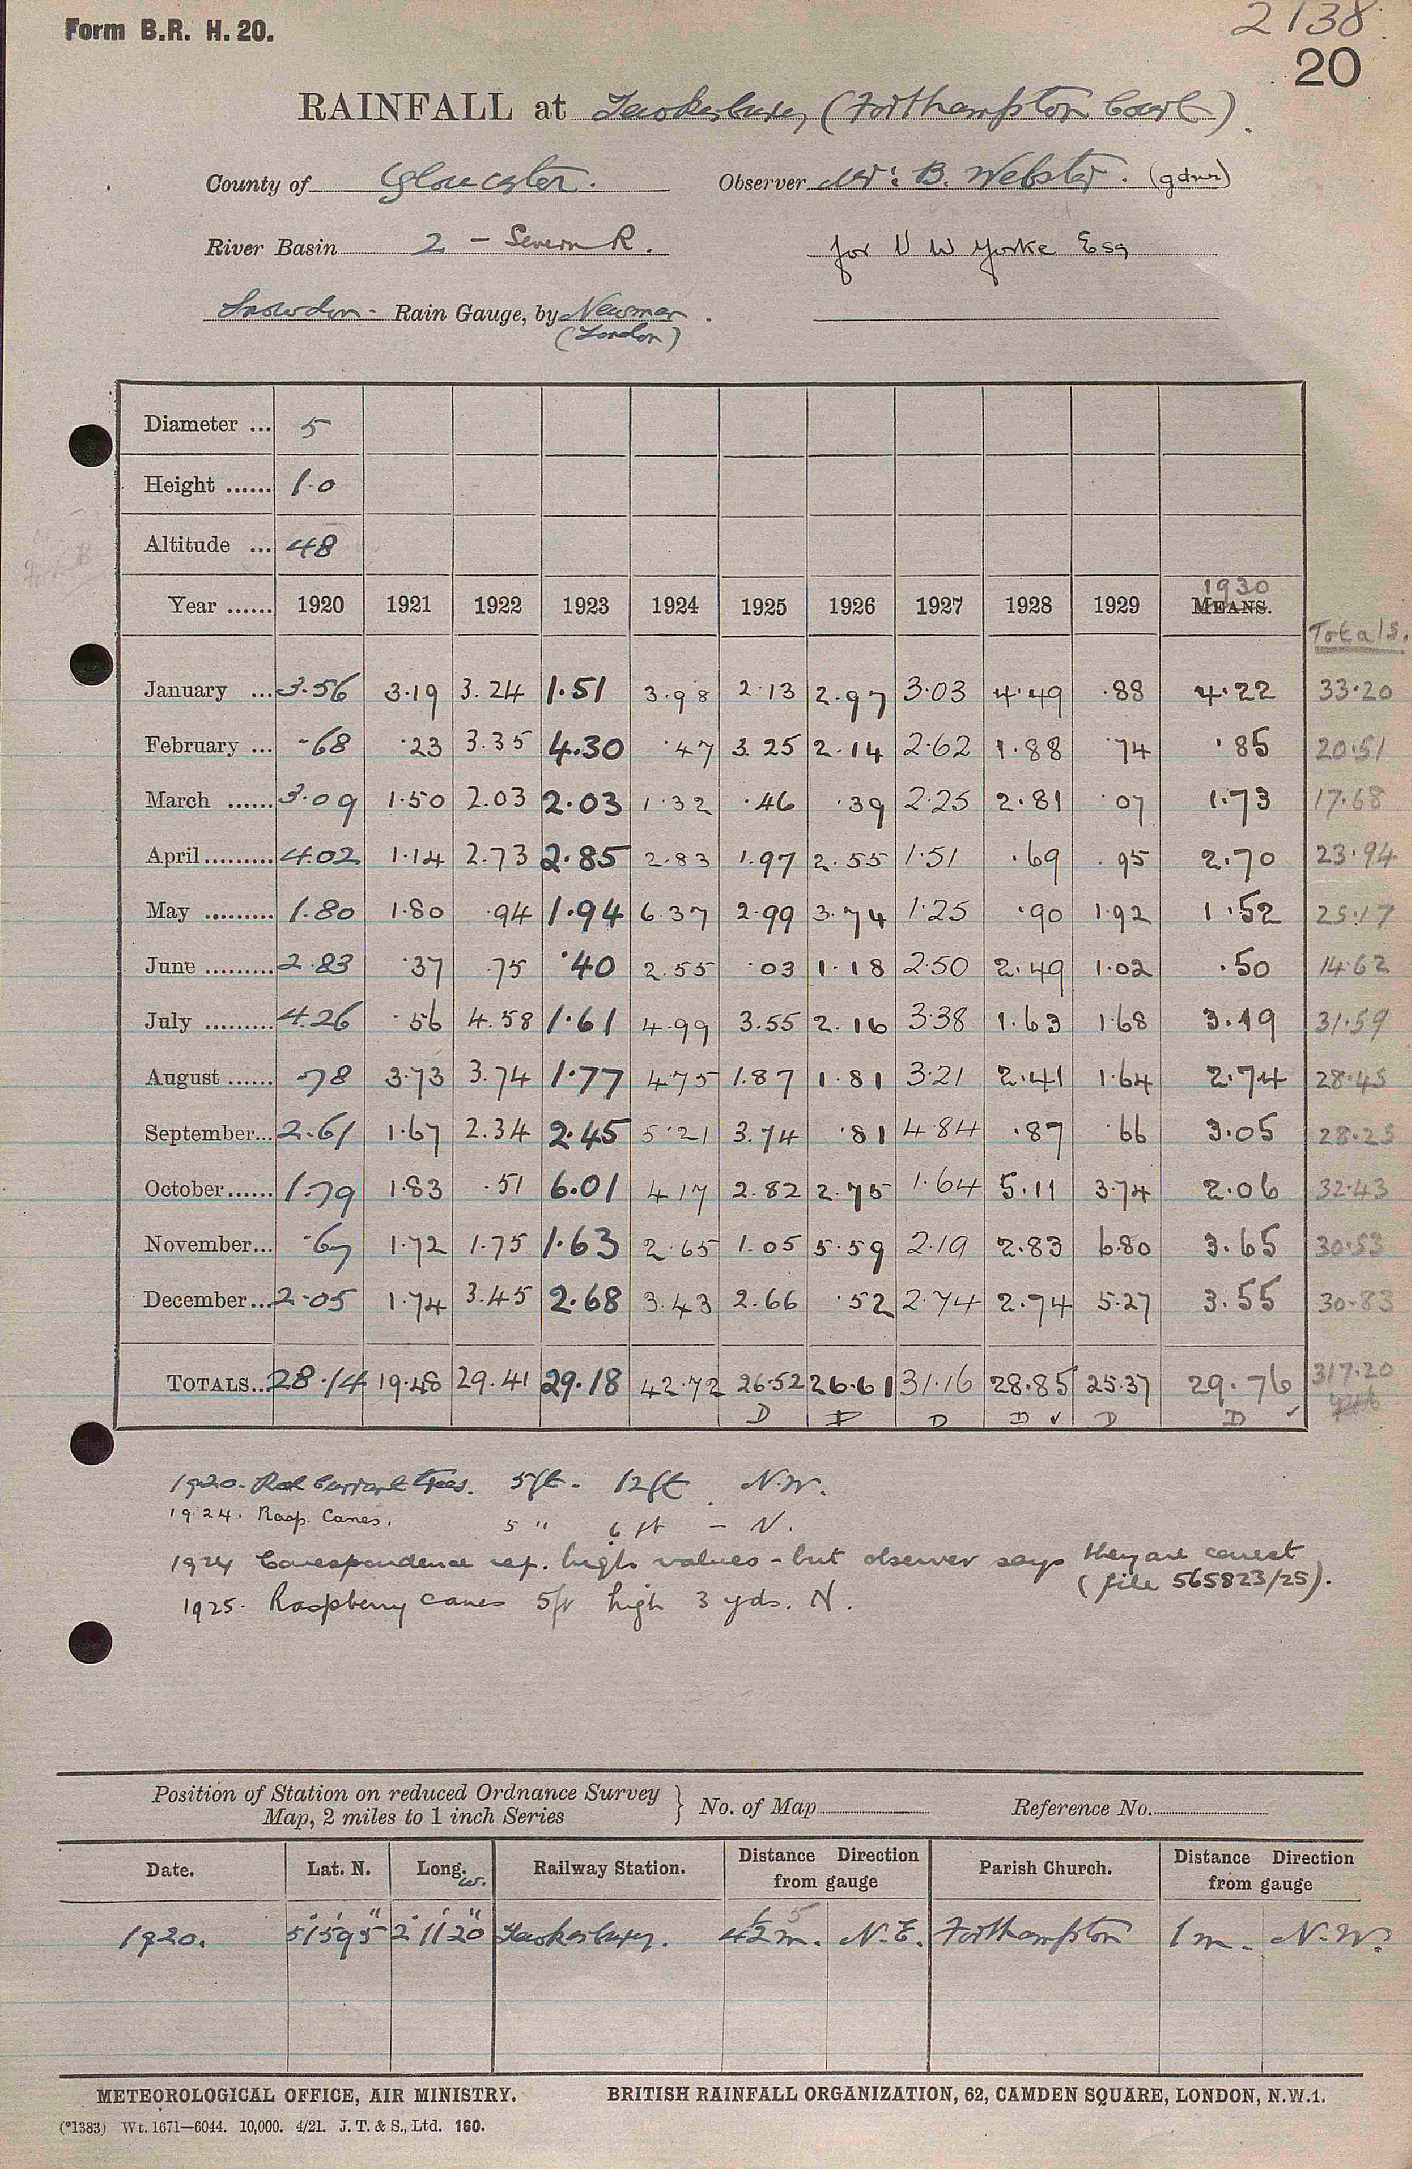 Form B.R. H. 20.
2138
20
RAINFALL at Tewkesbury (Forthampton Court).
County of Gloucester. Observer Mr: B. Webster. (gdnr)
River Basin 2 - Severn R. for V W Yorke Esq
Snowdon - Rain Gauge, by Newman.
(London)
Diameter ... 5
Height ...... 1.0
Altitude ... 48
1930
Year ...... 1920 1921 1922 1923 1924 1925 1926 1927 1928 1929 MEANS.
Totals.
January ... 3.56 3.19 3.24 1.51 3.98 2.13 2.97 3.03 4.49 .88 4.22 33.20
February ... .68 .23 3.35 4.30 .47 3.25 2.14 2.62 1.88 .74 .85 20.51
March ...... 3.09 1.50 2.03 2.03 1.32 .46 .39 2.25 2.81 .07 1.73 17.68
April ......... 4.02 1.14 2.73 2.85 2.83 1.97 2.55 1.51 .69 .95 2.70 23.94
May ......... 1.80 1.80 .94 1.94 6.37 2.99 3.74 1.25 .90 1.92 1.52 25.17
June ......... 2.83 .37 .75 .40 2.55 .03 1.18 2.50 2.49 1.02 .50 14.62
July ......... 4.26 .56 4.58 1.61 4.99 3.55 2.16 3.38 1.63 1.68 3.19 31.59
August ...... .78 3.73 3.74 1.77 4.75 1.87 1.81 3.21 2.41 1.64 2.74 28.45
September... 2.61 1.67 2.34 2.45 5.21 3.74 .81 4.84 .87 .66 3.05 28.25
October...... 1.79 1.83 .51 6.01 4.17 2.82 2.75 1.64 5.11 3.74 2.06 32.43
November... .67 1.72 1.75 1.63 2.65 1.05 5.59 2.19 2.83 6.80 3.65 30.53
December... 2.05 1.74 3.45 2.68 3.43 2.66 .52 2.74 2.74 5.27 3.55 30.83
TOTALS... 28.14 19.48 29.41 29.18 42.72 26.52 26.61 31.16 28.85 25.37 29.76 317.20
D D D D ✓ D D ✓
1920. Red Currant trees. 5ft. 12ft. N.W.
1924. Rasp. Canes. 5 " 6 ft - N.
1924 Correspondence rep. high values - but observer says they are correct
(file 565823/25).
1925. Raspberry canes 5ft high 3 yds. N.
Position of Station on reduced Ordnance Survey
Map, 2 miles to 1 inch Series } No. of Map Reference No.
Date. Lat. N. Long. W. Railway Station. Distance Direction from gauge Parish Church. Distance Direction from gauge
1920. 51° 59' 5" 2° 11' 20" Tewkesbury. 4½ m. N.E. Forthampton 1 m. N.W.
METEOROLOGICAL OFFICE, AIR MINISTRY. BRITISH RAINFALL ORGANIZATION, 62, CAMDEN SQUARE, LONDON, N.W.1.
(*1383) Wt. 1671—6044. 10,000. 4/21. J. T. & S., Ltd. 160.